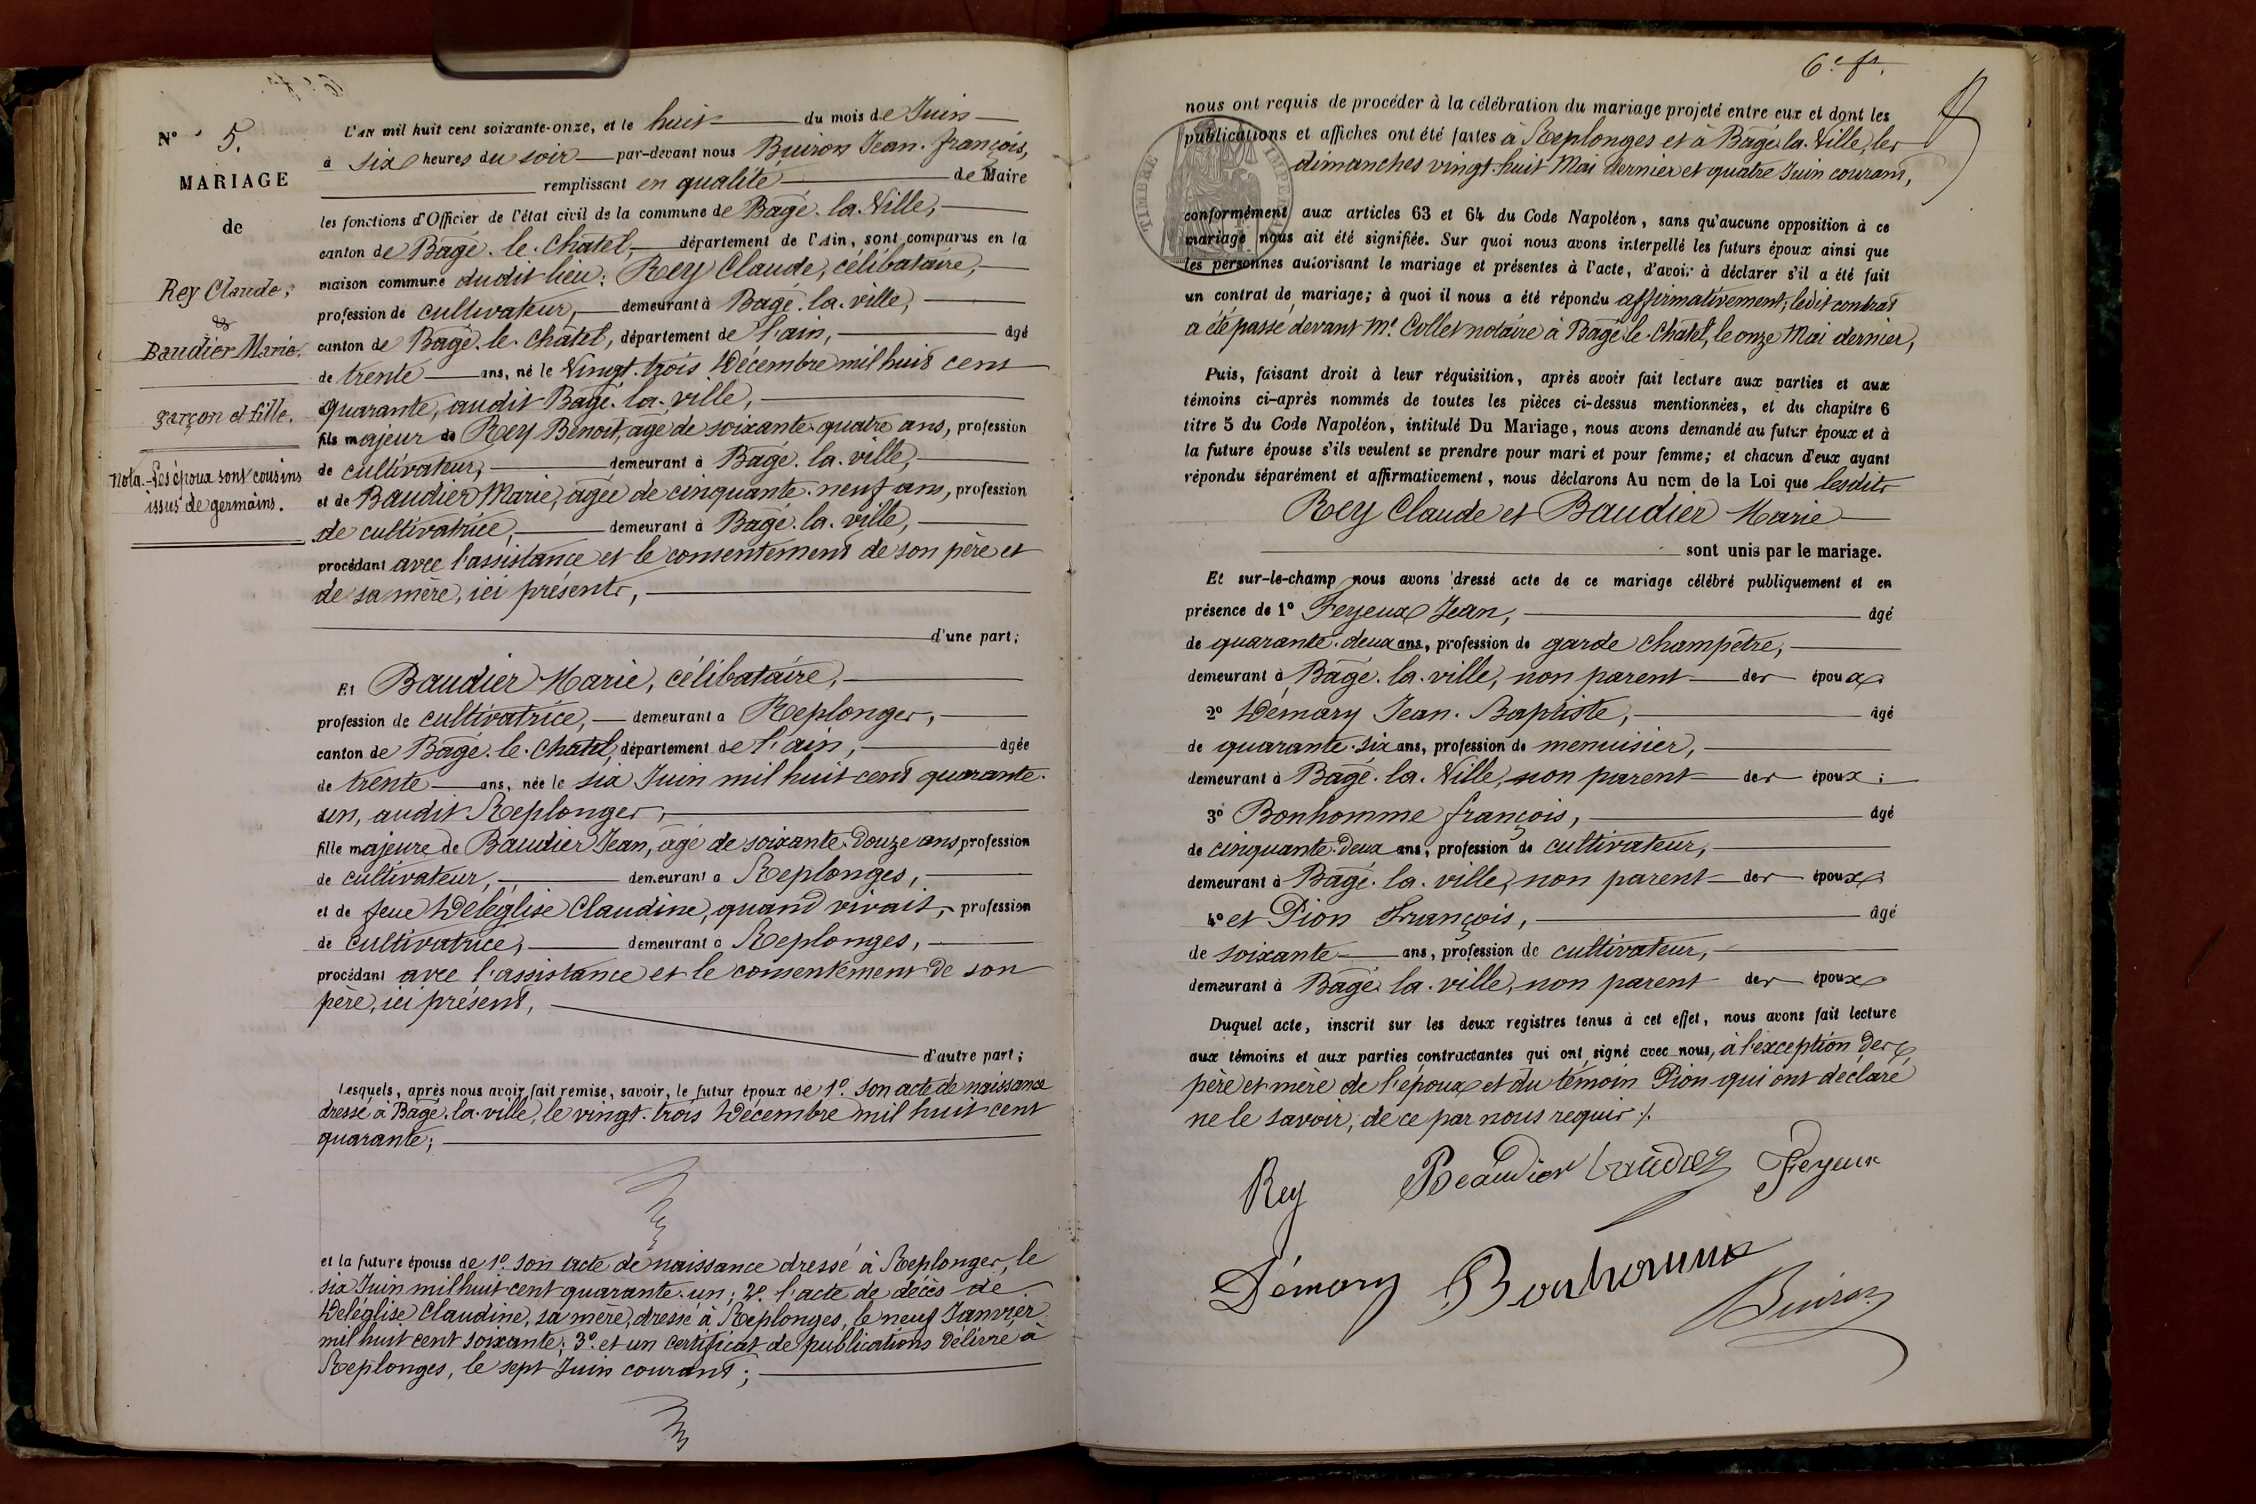 N° 5.
MARIAGE
de
Rey Claude,
&
Baudier Marie.
garçon et fille.
Nota.- Les époux sont cousins
issus de germains.
L'an mil huit cent soixante-onze, et le huit du mois de Juin
à six heures du soir par-devant nous Buiron Jean-françois,
remplissant en qualité de Maire
les fonctions d'Officier de l'état civil de la commune de Bâgé-la-Ville,
canton de Bâgé-le-Châtel, département de l'Ain, sont comparus en la
maison commune dudit lieu: Rey Claude, célibataire,
profession de cultivateur, demeurant à Bâgé-la-ville,
canton de Bâgé-le-Châtel, département de l'ain, âgé
de trente ans, né le vingt-trois Décembre mil huit cent
quarante, audit Bâgé-la-ville,
fils majeur de Rey Benoit, âgé de soixante-quatre ans, profession
de cultivateur, demeurant à Bâgé-la-ville,
et de Baudier Marie, âgée de cinquante-neuf ans, profession
de cultivatrice, demeurant à Bâgé-la-ville,
procédant avec l'assistance et le consentement de son père et
de sa mère, ici présents,
d'une part;
Et Baudier Marie, célibataire,
profession de cultivatrice, demeurant à Replonges,
canton de Bâgé-le-Châtel, département de l'ain, âgée
de trente ans, née le six Juin mil huit cent quarante-
un, audit Replonges,
fille majeure de Baudier Jean, âgé de soixante-douze ans profession
de cultivateur, demeurant à Replonges,
et de feue Deléglise Claudine, quand vivait, profession
de cultivatrice, demeurant à Replonges,
procédant avec l'assistance et le consentement de son
père, ici présent,
d'autre part;
Lesquels, après nous avoir fait remise, savoir, le futur époux de 1° son acte de naissance
dressé à Bâgé-la-ville, le vingt-trois Décembre mil huit cent
quarante;
et la future épouse de 1° son acte de naissance dressé à Replonges, le
six Juin mil huit cent quarante-un; 2° l'acte de décès de
Deléglise Claudine, sa mère, dressé à Replonges, le neuf Janvier
mil huit cent soixante; 3° et un certificat de publications délivré à
Replonges, le sept Juin courant;
6e ft.
nous ont requis de procéder à la célébration du mariage projeté entre eux et dont les
publications et affiches ont été faites à Replonges et à Bâgé-la-Ville, les
dimanches vingt-huit Mai dernier et quatre Juin courant,
TIMBRE IMPERIAL
conformément aux articles 63 et 64 du Code Napoléon, sans qu'aucune opposition à ce
mariage nous ait été signifiée. Sur quoi nous avons interpellé les futurs époux ainsi que
les personnes autorisant le mariage et présentes à l'acte, d'avoir à déclarer s'il a été fait
un contrat de mariage; à quoi il nous a été répondu affirmativement; ledit contrat
a été passé devant Me Collet notaire à Bâgé-le-Châtel, le onze Mai dernier,
Puis, faisant droit à leur réquisition, après avoir fait lecture aux parties et aux
témoins ci-après nommés de toutes les pièces ci-dessus mentionnées, et du chapitre 6
titre 5 du Code Napoléon, intitulé Du Mariage, nous avons demandé au futur époux et à
la future épouse s'ils veulent se prendre pour mari et pour femme; et chacun d'eux ayant
répondu séparément et affirmativement, nous déclarons Au nom de la Loi que lesdits
Rey Claude et Baudier Marie
sont unis par le mariage.
Et sur-le-champ nous avons dressé acte de ce mariage célébré publiquement et en
présence de 1° Feyeux Jean, âgé
de quarante-deux ans, profession de garde champêtre,
demeurant à Bâgé-la-ville, non parent des époux
2° Démary Jean-Baptiste, âgé
de quarante-six ans, profession de menuisier,
demeurant à Bâgé-la-Ville, non parent des époux;
3° Bonhomme françois, âgé
de cinquante-deux ans, profession de cultivateur,
demeurant à Bâgé-la-ville, non parent des époux
4° et Pion François, âgé
de soixante ans, profession de cultivateur,
demeurant à Bâgé-la-ville, non parent des époux
Duquel acte, inscrit sur les deux registres tenus à cet effet, nous avons fait lecture
aux témoins et aux parties contractantes qui ont signé avec nous, à l'exception des
père et mère de l'époux et du témoin Pion qui ont déclaré
ne le savoir, de ce par nous requis ./.
Rey Beaudier Baudier Feyeux
Démary Bonhomme
Buiron